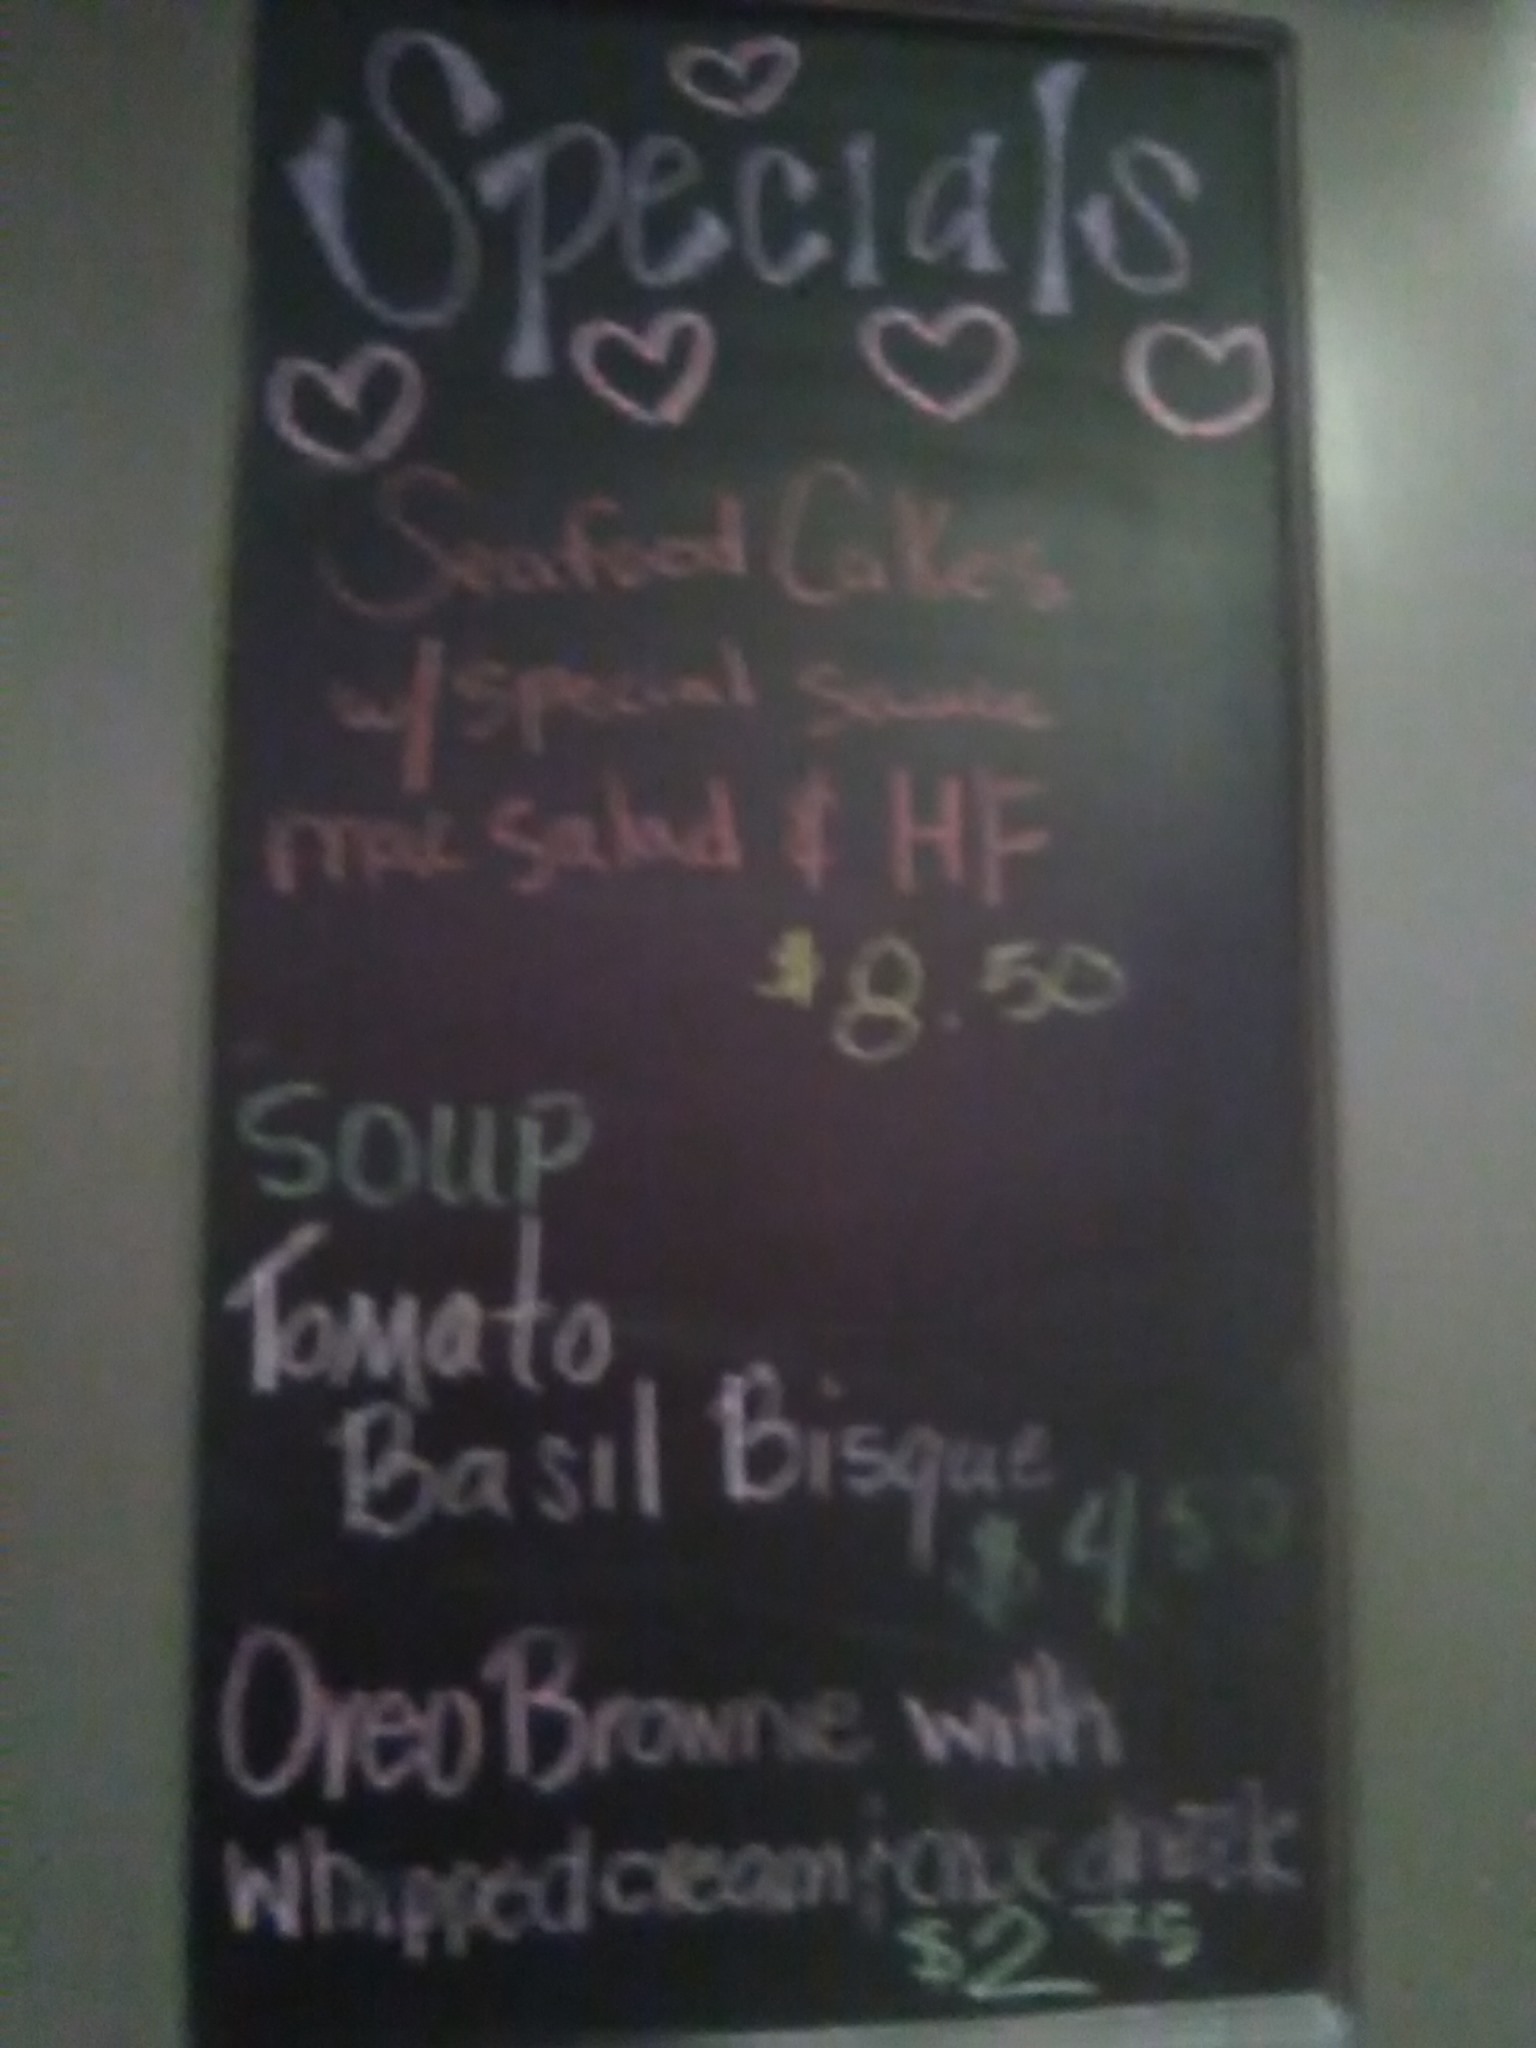 Specials
Seafood Cakes
w/ special sauce
mac salad & HF
$8.50
Soup
Tomato
Basil Bisque
$4 50
Oreo Brownie with
whipped cream & choc drizzle
$2 75